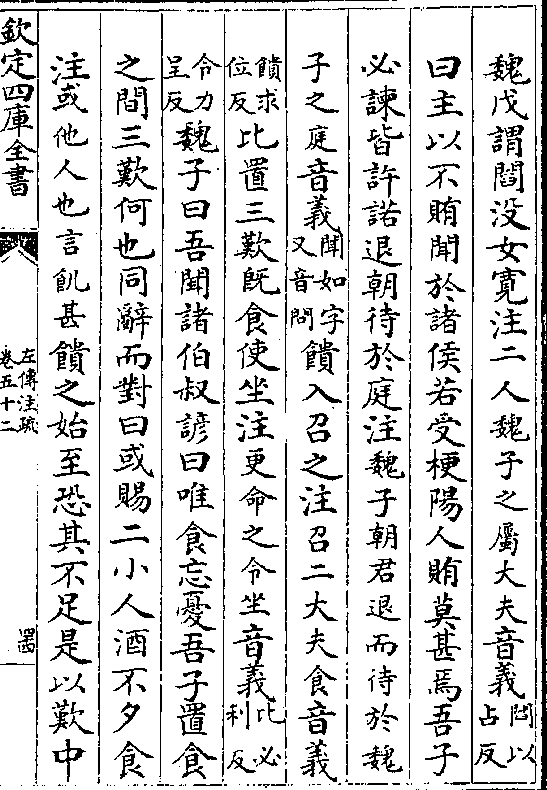 魏戊謂閻没女寛注二人魏子之屬大夫音義閻以占反
曰主以不賄聞於諸侯若受梗陽人賄莫甚焉吾子
必諫皆許諾退朝待於庭注魏子朝君退而待於魏
子之庭音義聞如字又音問饋入召之注召二大夫食音義
饋求位反比置三歎旣食使坐注更命之令坐音義比必利反
令力呈反魏子曰吾聞諸伯叔諺曰唯食忘憂吾子置食
之間三歎何也同辭而對曰或賜二小人酒不夕食
注或他人也言飢甚饋之始至恐其不足是以歎中
欽定四庫全書
左傳注疏
卷五十二